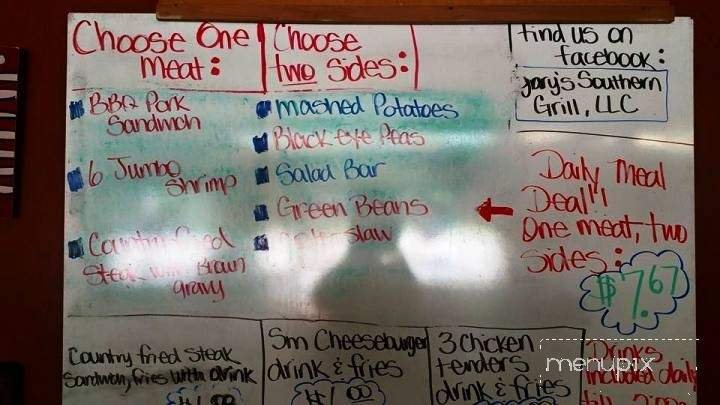 Choose One
Meat:
BBQ Pork
Sandwich
6 Jumbo
Shrimp
Country Fried
Steak with Brown
gravy
Choose
two Sides:
Mashed Potatoes
Black eye Peas
Salad Bar
Green Beans
Slaw
find us on
facebook:
Gary's Southern
Grill, LLC
Daily Meal
Deal!!
One meat, two
Sides:
$7.67
Country fried Steak
Sandwich, fries with drink
Sm Cheeseburger
drink & fries
3 Chicken
tenders
drink & fries
Drinks
included daily
menupix